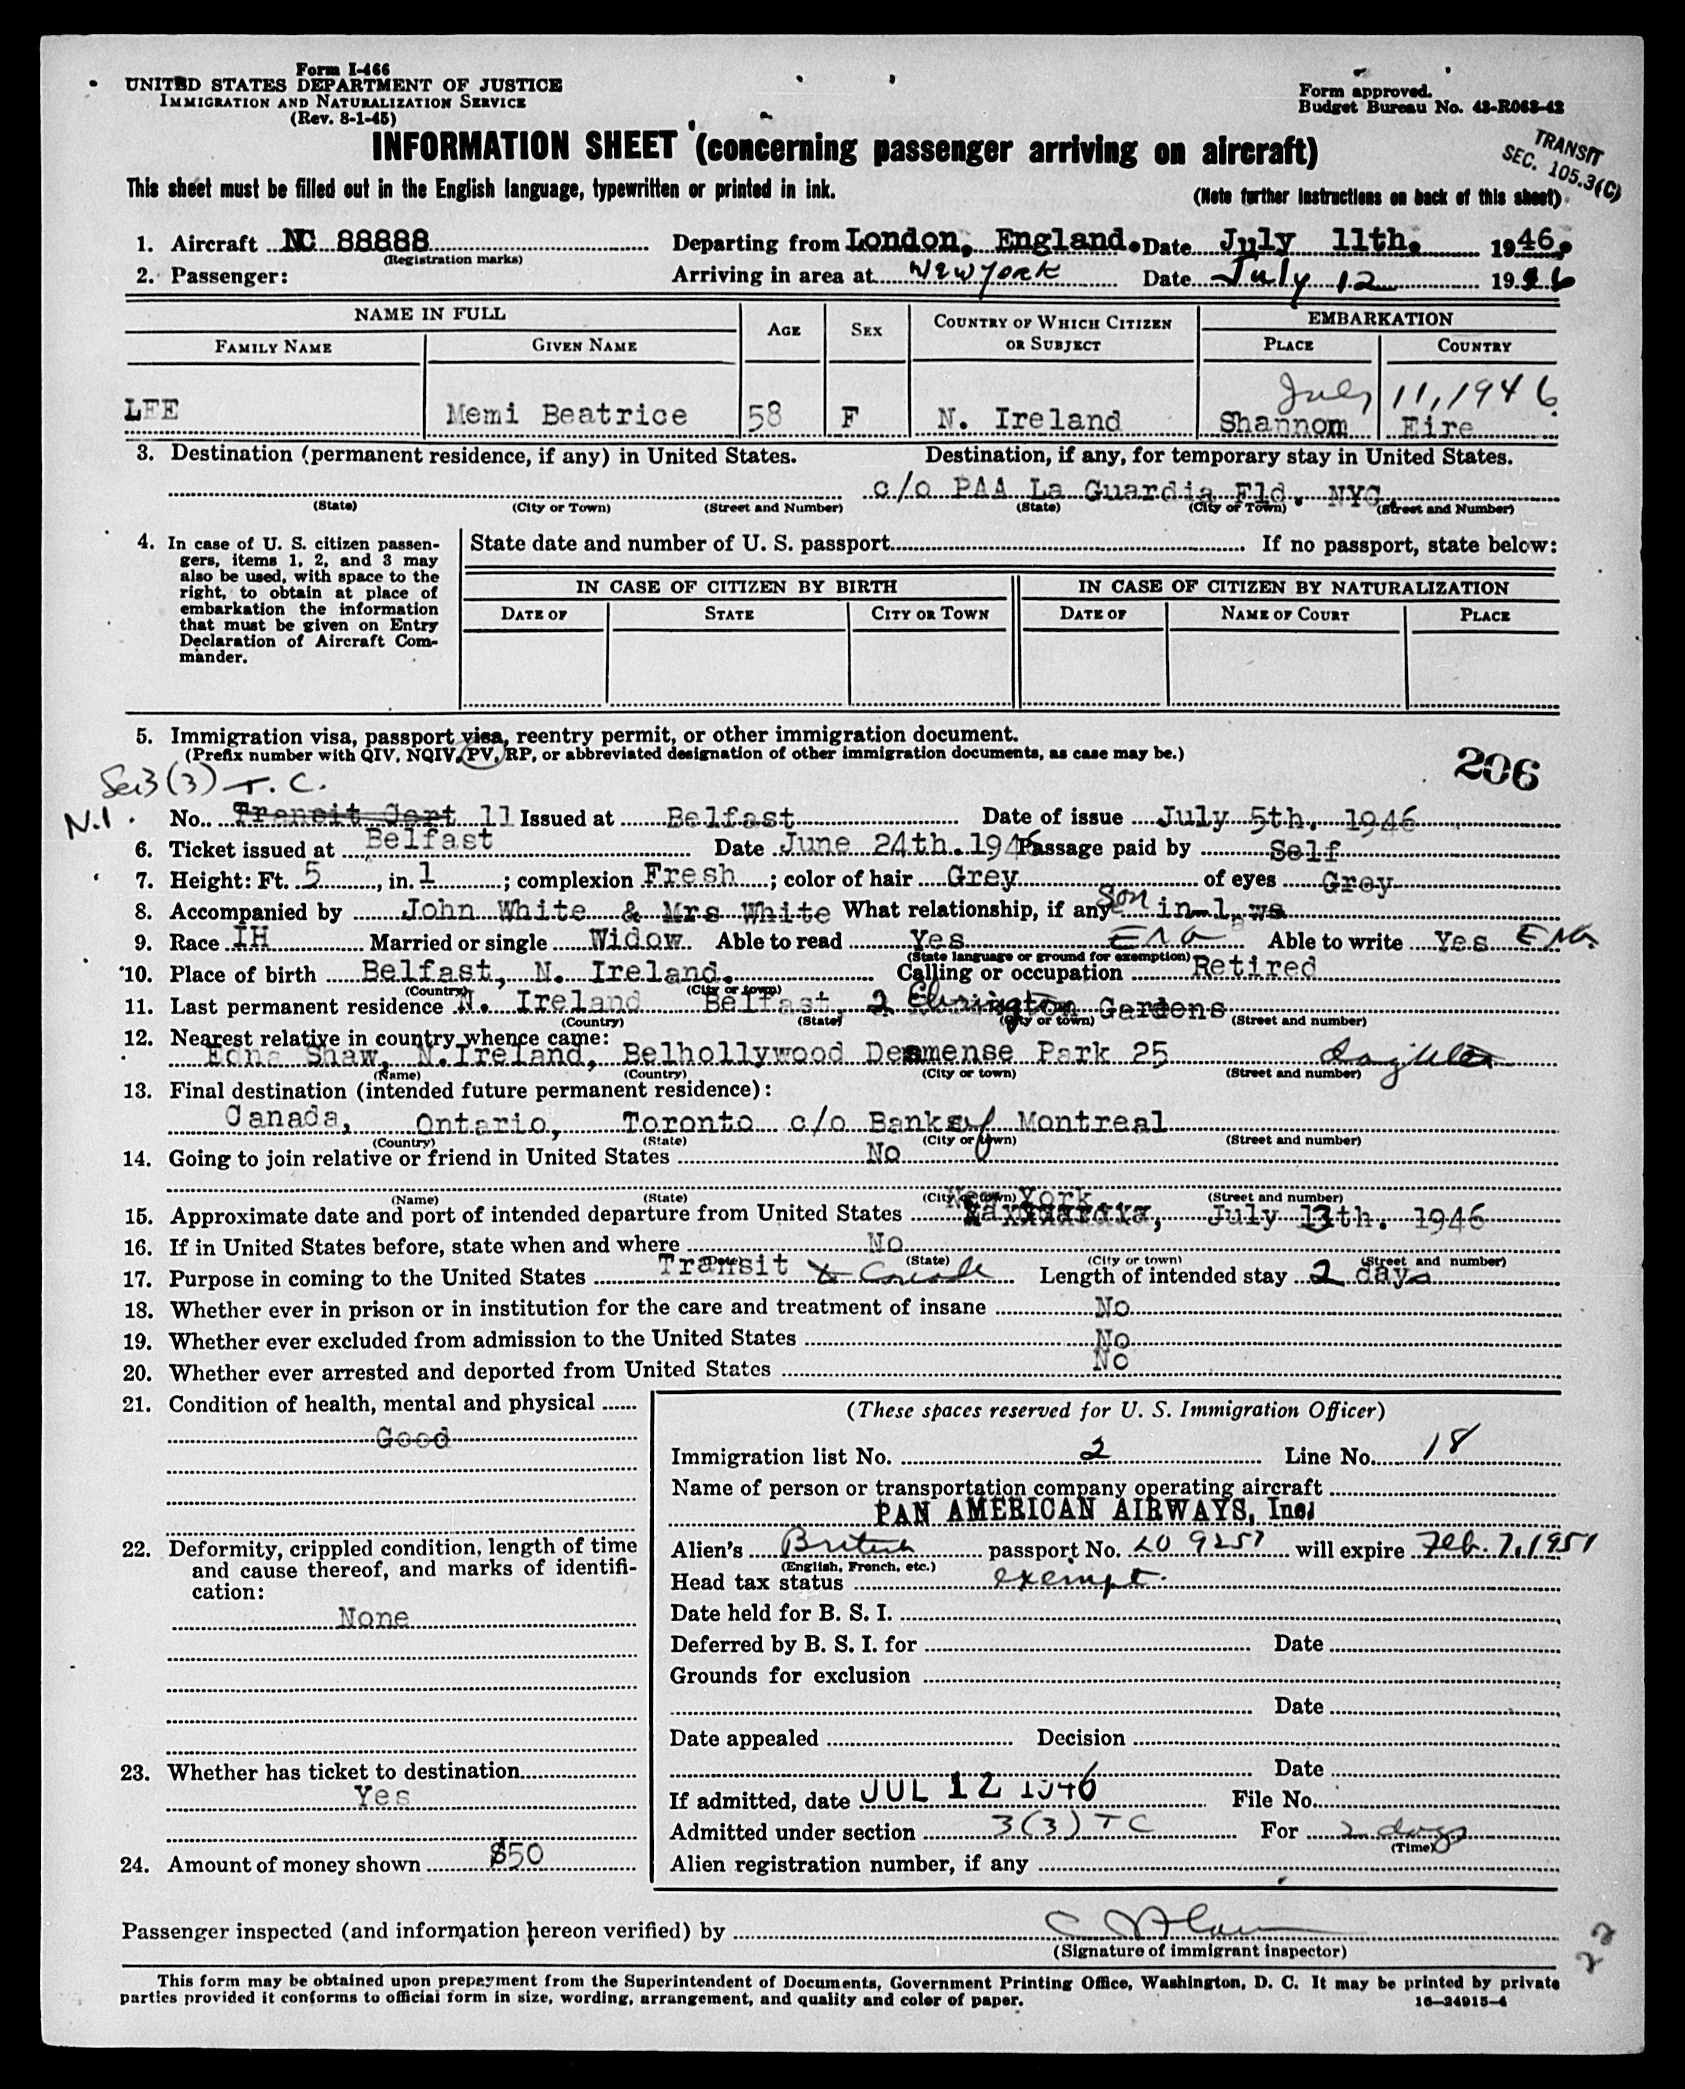 Form I-466
UNITED STATES DEPARTMENT OF JUSTICE
IMMIGRATION AND NATURALIZATION SERVICE
(Rev. 8-1-45)
Form approved.
Budget Bureau No. 43-R063-42
TRANSIT
SEC. 105.3(C)
INFORMATION SHEET (concerning passenger arriving on aircraft)
This sheet must be filled out in the English language, typewritten or printed in ink.
(Note further instructions on back of this sheet)
1. Aircraft NC 88888 Departing from London, England. Date July 11th. 1946.
(Registration marks)
2. Passenger: Arriving in area at New York Date July 12 1946
NAME IN FULL AGE SEX COUNTRY OF WHICH CITIZEN OR SUBJECT EMBARKATION
FAMILY NAME GIVEN NAME PLACE COUNTRY
July 11, 1946
LEE Memi Beatrice 58 F N. Ireland Shannom Eire
3. Destination (permanent residence, if any) in United States. Destination, if any, for temporary stay in United States.
c/o PAA La Guardia Fld. NYC.
(State) (City or Town) (Street and Number) (State) (City or Town) (Street and Number)
4. In case of U. S. citizen passengers, items 1, 2, and 3 may also be used, with space to the right, to obtain at place of embarkation the information that must be given on Entry Declaration of Aircraft Commander.
State date and number of U. S. passport If no passport, state below:
IN CASE OF CITIZEN BY BIRTH IN CASE OF CITIZEN BY NATURALIZATION
DATE OF STATE CITY OR TOWN DATE OF NAME OF COURT PLACE
5. Immigration visa, passport visa, reentry permit, or other immigration document.
(Prefix number with QIV, NQIV, PV, RP, or abbreviated designation of other immigration documents, as case may be.)
206
Sec 3(3) T. C.
N.I. No. Transit Cert 11 Issued at Belfast Date of issue July 5th. 1946
6. Ticket issued at Belfast Date June 24th. 1946 Passage paid by Self
7. Height: Ft. 5, in. 1; complexion Fresh; color of hair Grey of eyes Grey
8. Accompanied by John White & Mrs White What relationship, if any Son in laws
9. Race IH Married or single Widow Able to read Yes Eng Able to write Yes Eng.
(State language or ground for exemption)
10. Place of birth Belfast, N. Ireland. Calling or occupation Retired
(Country) (City or town)
11. Last permanent residence N. Ireland Belfast, 2 Gardens
(Country) (State) (City or town) (Street and number)
12. Nearest relative in country whence came:
Edna Shaw, N.Ireland, Belhollywood Demmense Park 25 daughter
(Name) (Country) (City or town) (Street and number)
13. Final destination (intended future permanent residence):
Canada, Ontario, Toronto c/o Bank of Montreal
(Country) (State) (City or town) (Street and number)
14. Going to join relative or friend in United States No
(Name) (State) (City or town) (Street and number)
15. Approximate date and port of intended departure from United States New York July 13th. 1946
16. If in United States before, state when and where No
(Date) (State) (City or town) (Street and number)
17. Purpose in coming to the United States Transit to Canada Length of intended stay 2 days
18. Whether ever in prison or in institution for the care and treatment of insane No
19. Whether ever excluded from admission to the United States No
20. Whether ever arrested and deported from United States No
21. Condition of health, mental and physical
Good
22. Deformity, crippled condition, length of time and cause thereof, and marks of identification:
None
23. Whether has ticket to destination
Yes
24. Amount of money shown $50
(These spaces reserved for U. S. Immigration Officer)
Immigration list No. 2 Line No. 18
Name of person or transportation company operating aircraft
PAN AMERICAN AIRWAYS, Inc.
Alien's British passport No. 209257 will expire Feb. 7, 1951
(English, French, etc.)
Head tax status exempt.
Date held for B. S. I.
Deferred by B. S. I. for Date
Grounds for exclusion
Date
Date appealed Decision
Date
If admitted, date JUL 12 1946 File No.
Admitted under section 3(3) TC For 2 days
(Time)
Alien registration number, if any
Passenger inspected (and information hereon verified) by
(Signature of immigrant inspector)
22
This form may be obtained upon prepayment from the Superintendent of Documents, Government Printing Office, Washington, D. C. It may be printed by private
parties provided it conforms to official form in size, wording, arrangement, and quality and color of paper.
16—24915-4